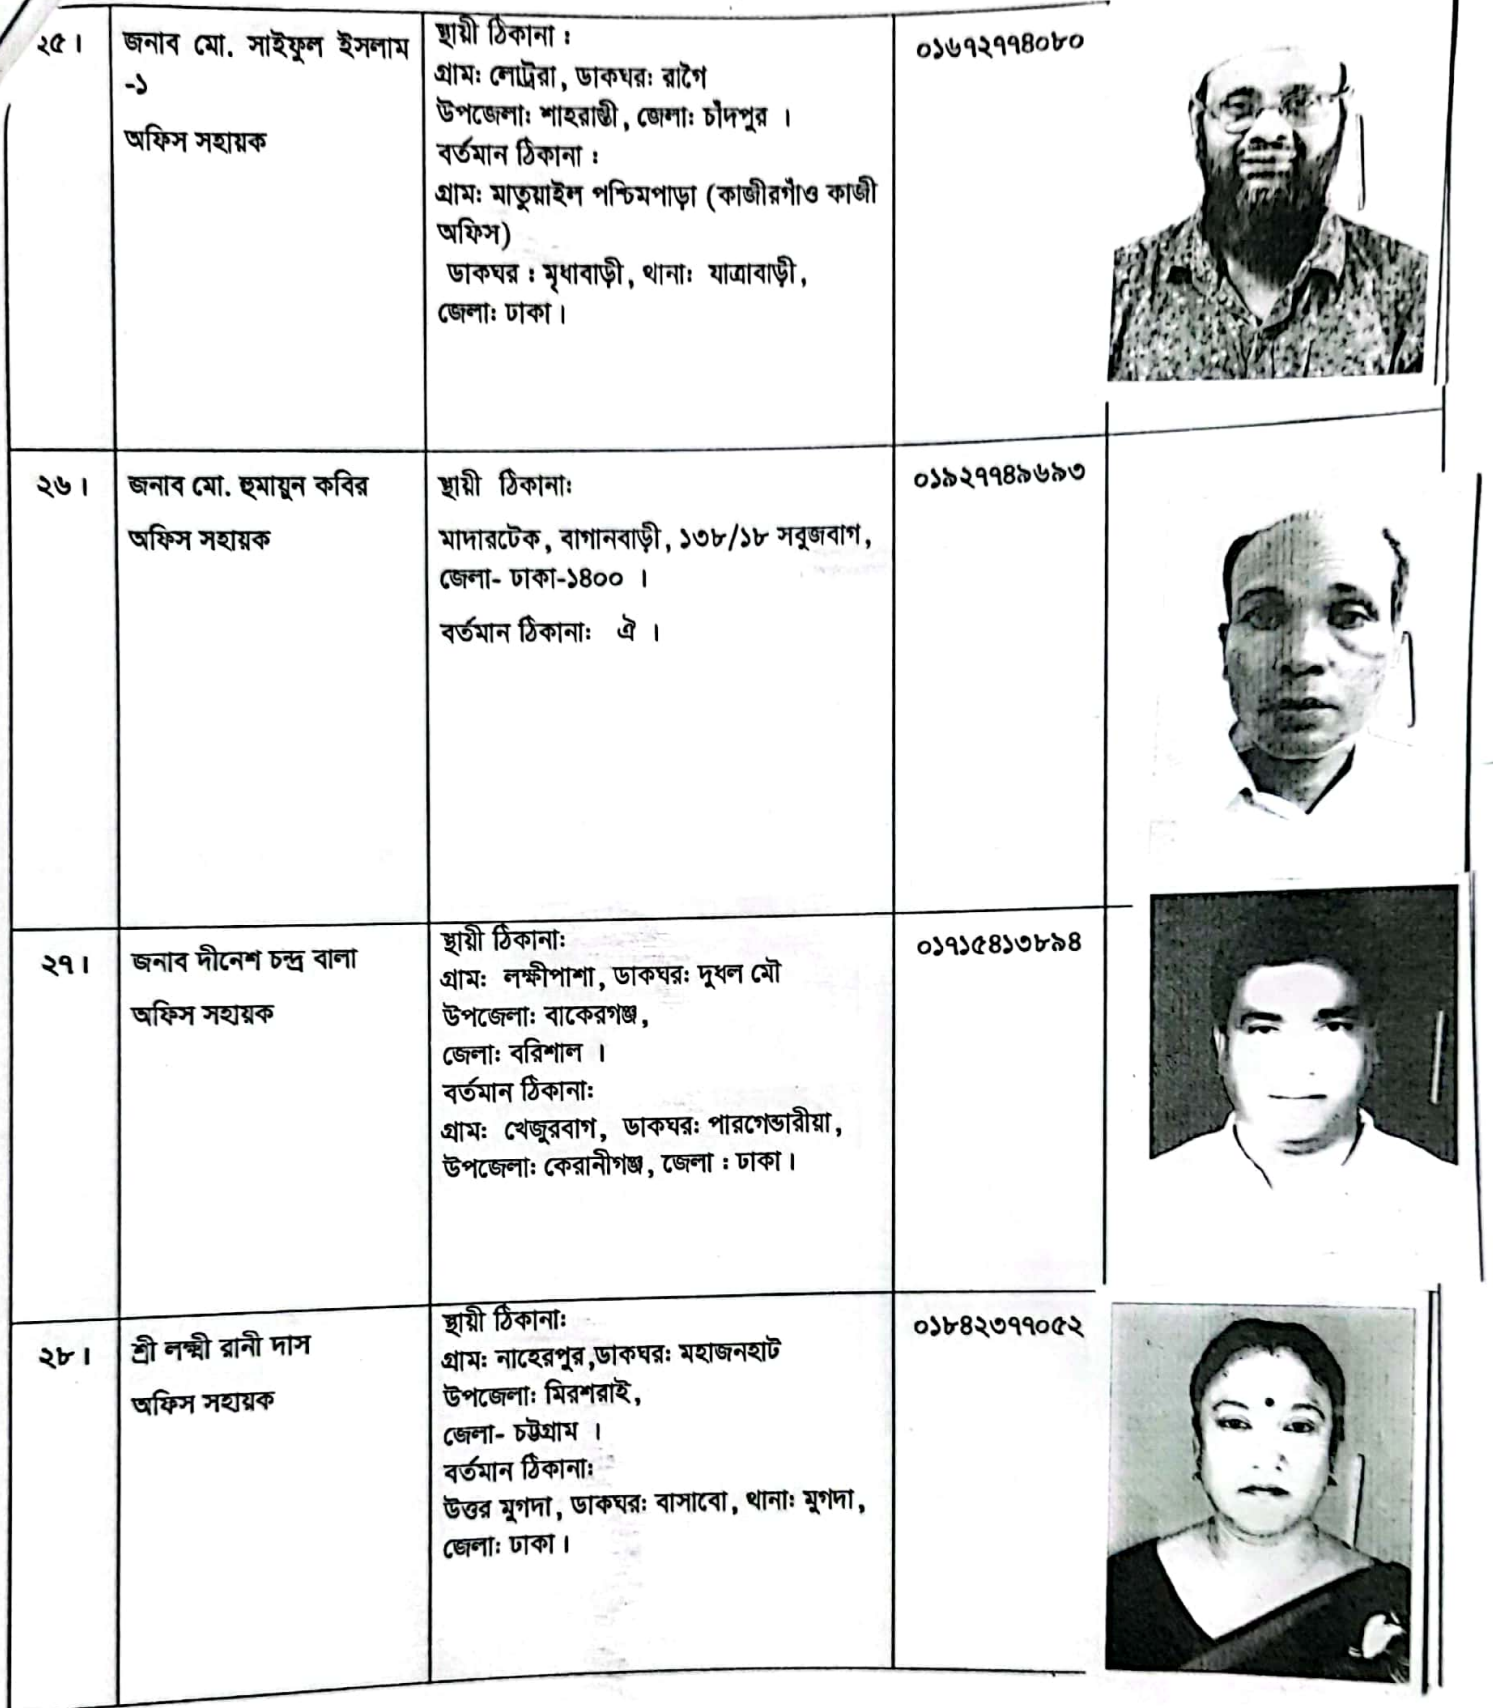 ২৫।
জনাব মো. সাইফুল ইসলাম
-১
অফিস সহায়ক
স্থায়ী ঠিকানা :
গ্রাম: লোট্রা, ডাকঘর: রাগৈ
উপজেলা: শাহরাস্তী, জেলা: চাঁদপুর ।
বর্তমান ঠিকানা :
গ্রাম: মাতুয়াইল পশ্চিমপাড়া (কাজীরগাঁও কাজী
অফিস)
ডাকঘর : মৃধাবাড়ী, থানা: যাত্রাবাড়ী,
জেলা: ঢাকা।
০১৬৭২৭৭৪০৮০
২৬।
জনাব মো. হুমায়ুন কবির
অফিস সহায়ক
স্থায়ী ঠিকানা:
মাদারটেক, বাগানবাড়ী, ১৩৮/১৮ সবুজবাগ,
জেলা- ঢাকা-১৪০০ ।
বর্তমান ঠিকানা: ঐ ।
০১৯২৭৭৪৯৬৯৩
২৭।
জনাব দীনেশ চন্দ্র বালা
অফিস সহায়ক
স্থায়ী ঠিকানা:
গ্রাম: লক্ষীপাশা, ডাকঘর: দুধল মৌ
উপজেলা: বাকেরগঞ্জ,
জেলা: বরিশাল ।
বর্তমান ঠিকানা:
গ্রাম: খেজুরবাগ, ডাকঘর: পারগেন্ডারীয়া,
উপজেলা: কেরানীগঞ্জ, জেলা : ঢাকা।
০১৭১৫৪১৩৮৯৪
২৮।
শ্রী লক্ষ্মী রানী দাস
অফিস সহায়ক
স্থায়ী ঠিকানা:
গ্রাম: নাহেরপুর,ডাকঘর: মহাজনহাট
উপজেলা: মিরশরাই,
জেলা- চট্টগ্রাম ।
বর্তমান ঠিকানা:
উত্তর মুগদা, ডাকঘর: বাসাবো, থানা: মুগদা,
জেলা: ঢাকা।
০১৮৪২৩৭৭০৫২